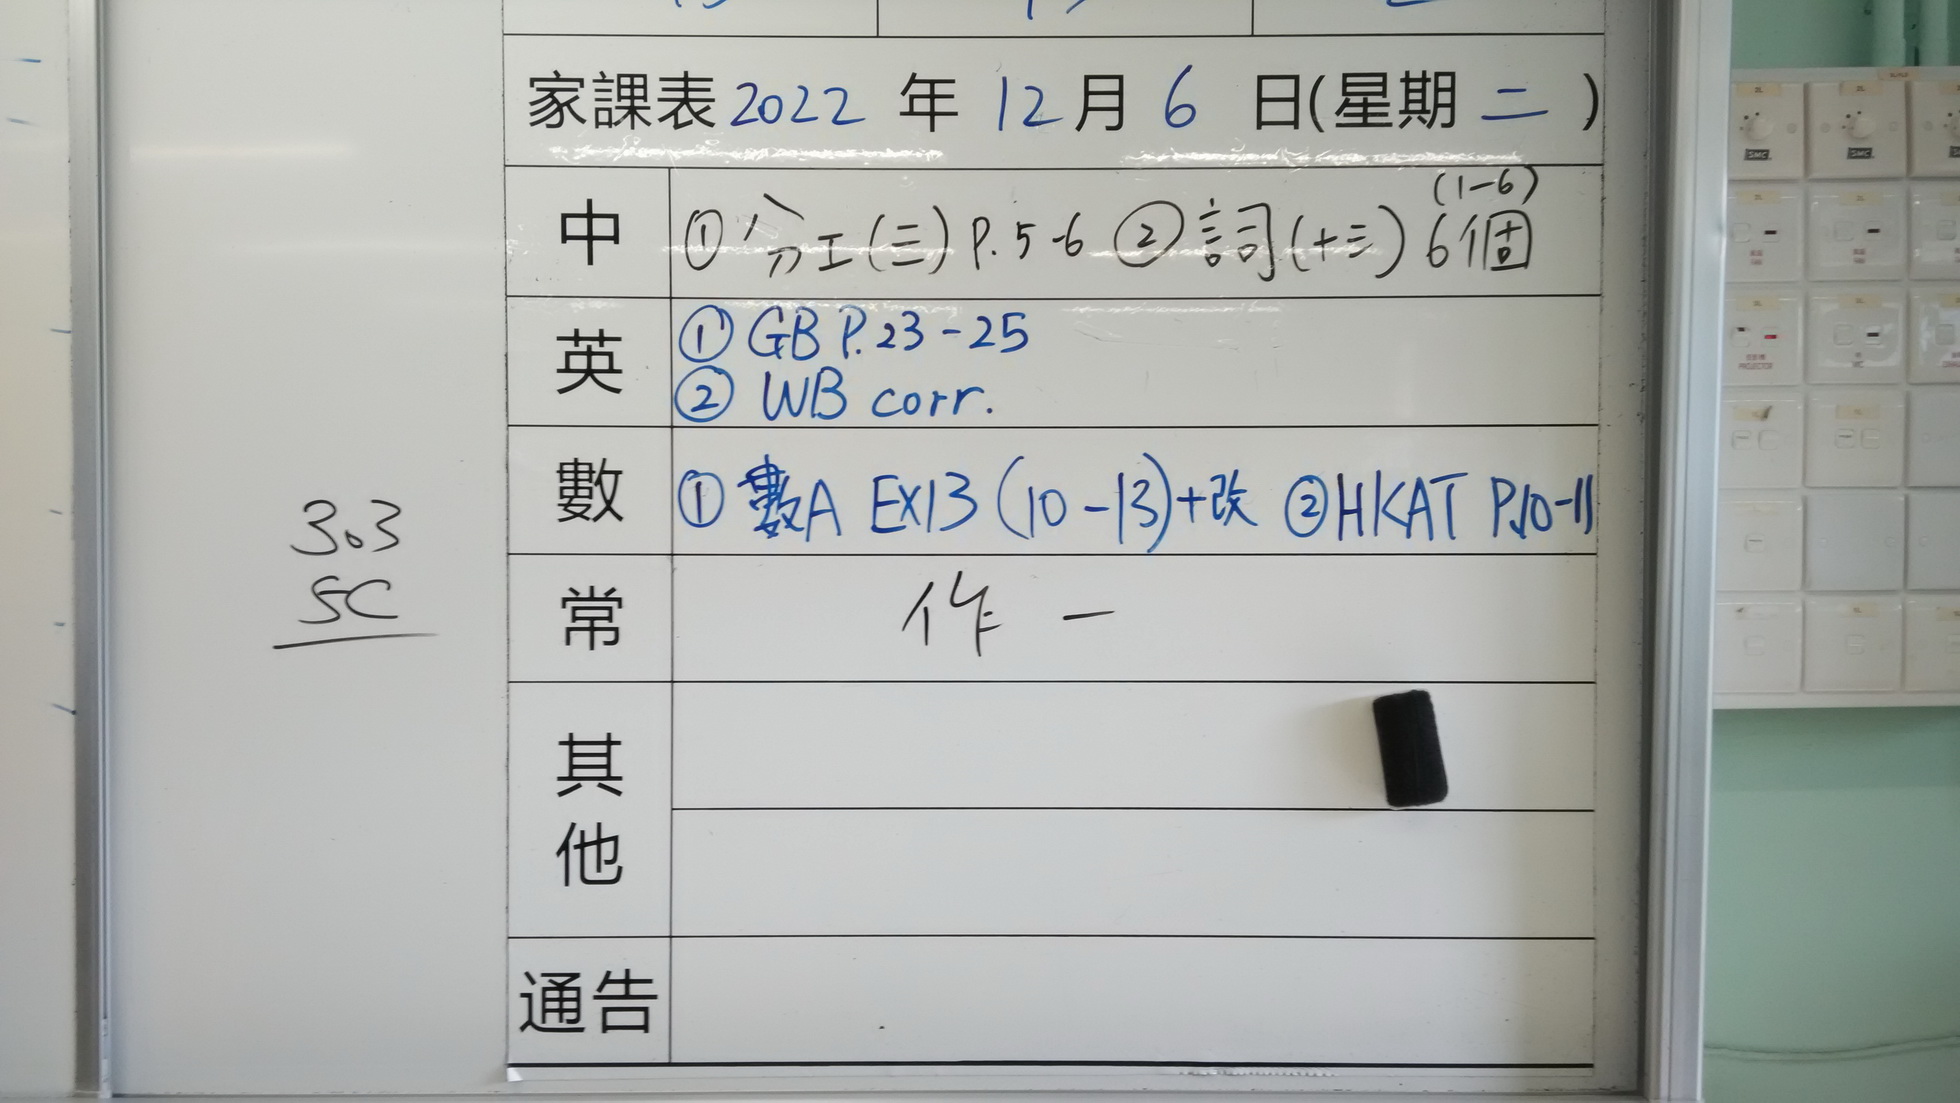 家課表 2022 年 12 月 6 日(星期 二 )
(1-6)
中 ① 分工(三) P. 5-6 ② 詞(十三) 6個
英 ① GB P.23-25
② WB corr.
數 ① 數A EX13 (10-13)+改 ②HKAT P.10-11
3.3
5C
常 作 一
其
他
通告